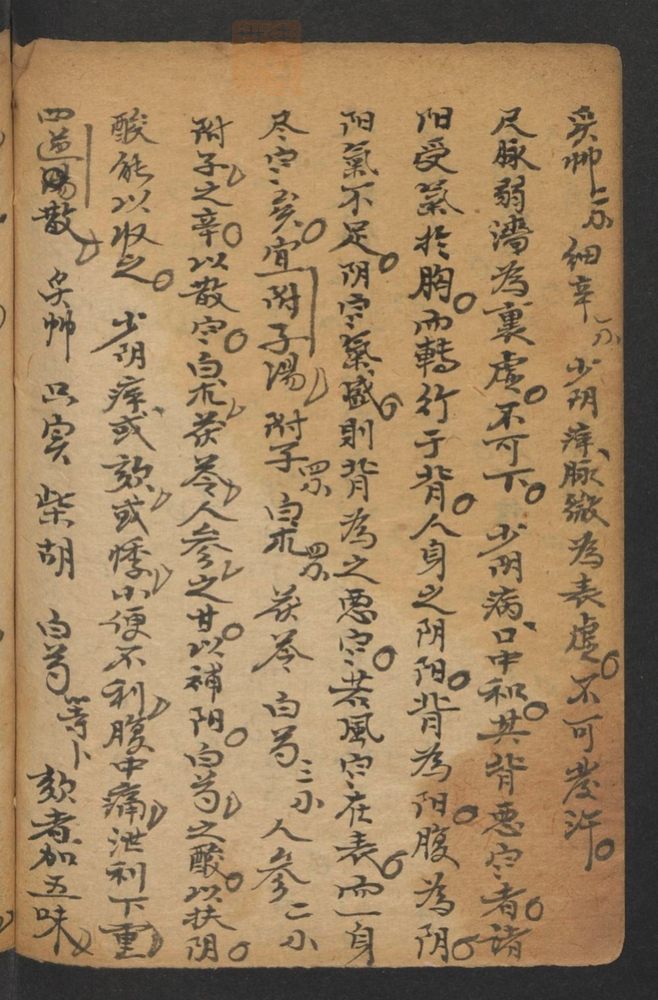 炙艸二분 細辛一分 少阴痺、脉微為表虗。不可發汗。
尺脉弱濇為裏虗。不可下。少阴病、口中和。其背悪寒者。諸
阳受氣於胸。而轉行于背。人身之阴阳。背為阳。腹為阴。
阳氣不足。阴寒氣盛。則背為之悪寒。若風寒在表。而一身
尽寒矣。宜附子湯 附子 白朮 茯苓 白芍三 人參二
附子之辛。以散寒。白朮茯苓人參之甘。以補阳。白芍之酸。以扶阴。
酸能以收之。 少阴痺、或欬或悸小便不利腹中痛泄利下重
四逆湯散 炙艸 只实 柴胡 白芍等卜 欬者加五味